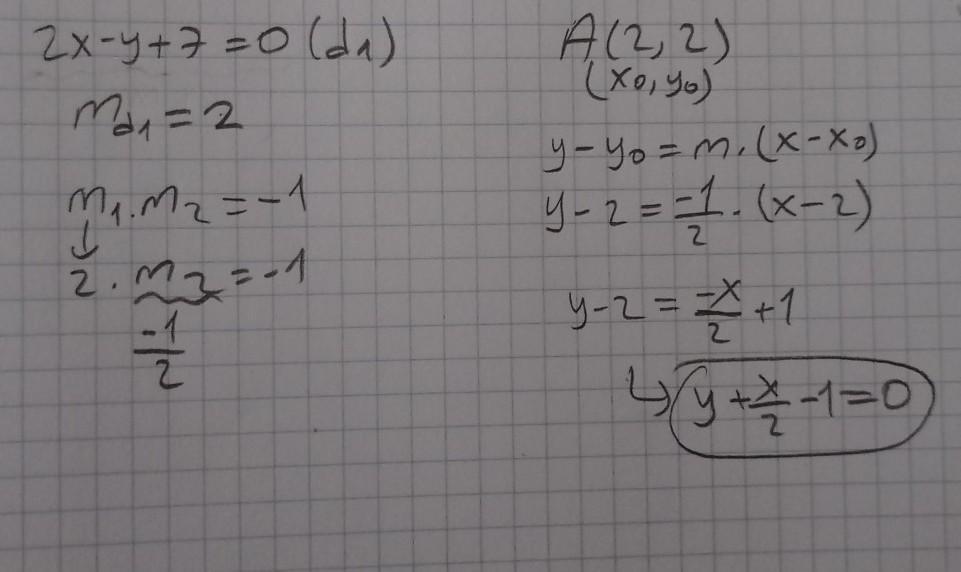 2x-y+7=0 (d1)
m_d1 = 2
m1.m2 = -1
↓
2.m2 = -1
-1/2
A(2,2)
(x0,y0)
y-y0 = m.(x-x0)
y-2 = -1/2.(x-2)
y-2 = -x/2 +1
↳ y+x/2-1=0